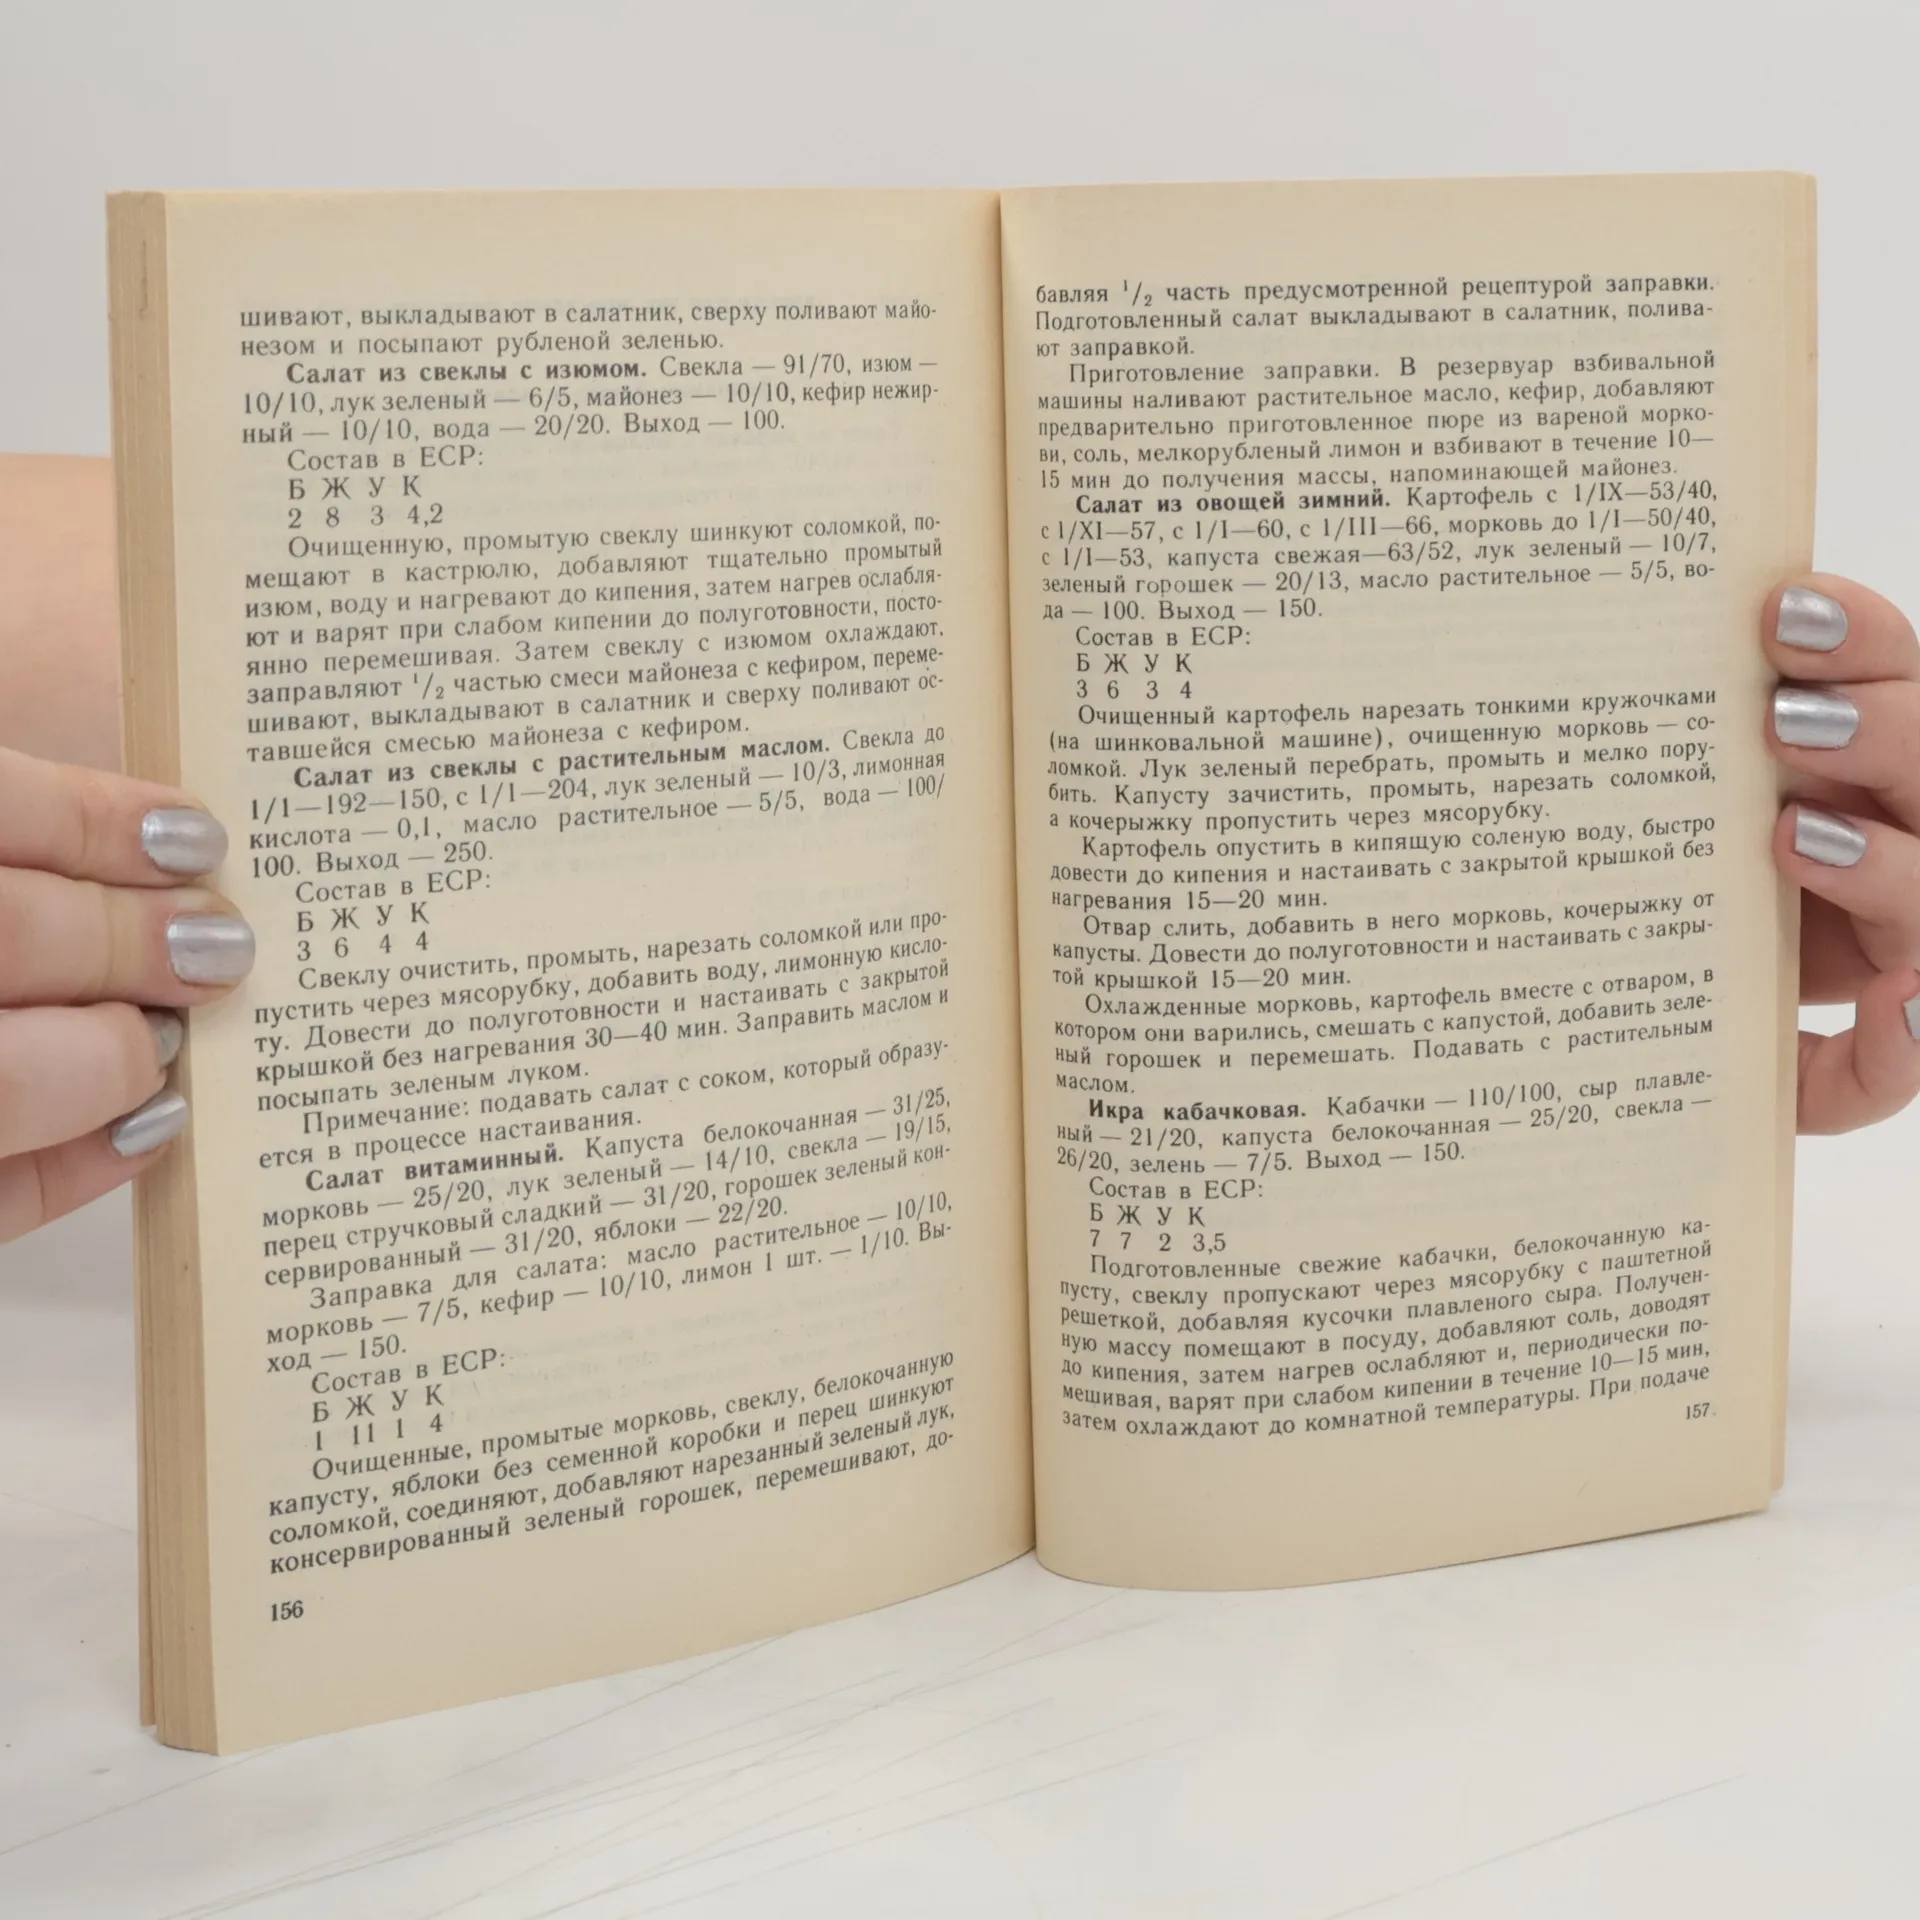 шивают, выкладывают в салатник, сверху поливают майо-
незом и посыпают рубленой зеленью.
Салат из свеклы с изюмом. Свекла — 91/70, изюм —
10/10, лук зеленый — 6/5, майонез — 10/10, кефир нежир-
ный — 10/10, вода — 20/20. Выход — 100.
Состав в ЕСР:
Б Ж У К
2 8 3 4,2
Очищенную, промытую свеклу шинкуют соломкой, по-
мещают в кастрюлю, добавляют тщательно промытый
изюм, воду и нагревают до кипения, затем нагрев ослабля-
ют и варят при слабом кипении до полуготовности, посто-
янно перемешивая. Затем свеклу с изюмом охлаждают,
заправляют 1/2 частью смеси майонеза с кефиром, переме-
шивают, выкладывают в салатник и сверху поливают ос-
тавшейся смесью майонеза с кефиром.
Салат из свеклы с растительным маслом. Свекла до
1/1—192—150, с 1/1—204, лук зеленый — 10/3, лимонная
кислота — 0,1, масло растительное — 5/5, вода — 100/
100. Выход — 250.
Состав в ЕСР:
Б Ж У К
3 6 4 4
Свеклу очистить, промыть, нарезать соломкой или про-
пустить через мясорубку, добавить воду, лимонную кисло-
ту. Довести до полуготовности и настаивать с закрытой
крышкой без нагревания 30—40 мин. Заправить маслом и
посыпать зеленым луком.
Примечание: подавать салат с соком, который образу-
ется в процессе настаивания.
Салат витаминный. Капуста белокочанная — 31/25,
морковь — 25/20, лук зеленый — 14/10, свекла — 19/15,
перец стручковый сладкий — 31/20, горошек зеленый кон-
сервированный — 31/20, яблоки — 22/20.
Заправка для салата: масло растительное — 10/10,
морковь — 7/5, кефир — 10/10, лимон 1 шт. — 1/10. Вы-
ход — 150.
Состав в ЕСР:
Б Ж У К
1 11 1 4
Очищенные, промытые морковь, свеклу, белокочанную
капусту, яблоки без семенной коробки и перец шинкуют
соломкой, соединяют, добавляют нарезанный зеленый лук,
консервированный зеленый горошек, перемешивают, до-
156
бавляя 1/2 часть предусмотренной рецептурой заправки.
Подготовленный салат выкладывают в салатник, полива-
ют заправкой.
Приготовление заправки. В резервуар взбивальной
машины наливают растительное масло, кефир, добавляют
предварительно приготовленное пюре из вареной морко-
ви, соль, мелкорубленый лимон и взбивают в течение 10—
15 мин до получения массы, напоминающей майонез.
Салат из овощей зимний. Картофель с 1/IX—53/40,
с 1/XI—57, с 1/I—60, с 1/III—66, морковь до 1/I—50/40,
с 1/I—53, капуста свежая—63/52, лук зеленый — 10/7,
зеленый горошек — 20/13, масло растительное — 5/5, во-
да — 100. Выход — 150.
Состав в ЕСР:
Б Ж У К
3 6 3 4
Очищенный картофель нарезать тонкими кружочками
(на шинковальной машине), очищенную морковь — со-
ломкой. Лук зеленый перебрать, промыть и мелко пору-
бить. Капусту зачистить, промыть, нарезать соломкой,
а кочерыжку пропустить через мясорубку.
Картофель опустить в кипящую соленую воду, быстро
довести до кипения и настаивать с закрытой крышкой без
нагревания 15—20 мин.
Отвар слить, добавить в него морковь, кочерыжку от
капусты. Довести до полуготовности и настаивать с закры-
той крышкой 15—20 мин.
Охлажденные морковь, картофель вместе с отваром, в
котором они варились, смешать с капустой, добавить зеле-
ный горошек и перемешать. Подавать с растительным
маслом.
Икра кабачковая. Кабачки — 110/100, сыр плавле-
ный — 21/20, капуста белокочанная — 25/20, свекла —
26/20, зелень — 7/5. Выход — 150.
Состав в ЕСР:
Б Ж У К
7 7 2 3,5
Подготовленные свежие кабачки, белокочанную ка-
пусту, свеклу пропускают через мясорубку с паштетной
решеткой, добавляя кусочки плавленого сыра. Получен-
ную массу помещают в посуду, добавляют соль, доводят
до кипения, затем нагрев ослабляют и, периодически по-
мешивая, варят при слабом кипении в течение 10—15 мин,
затем охлаждают до комнатной температуры. При подаче
157